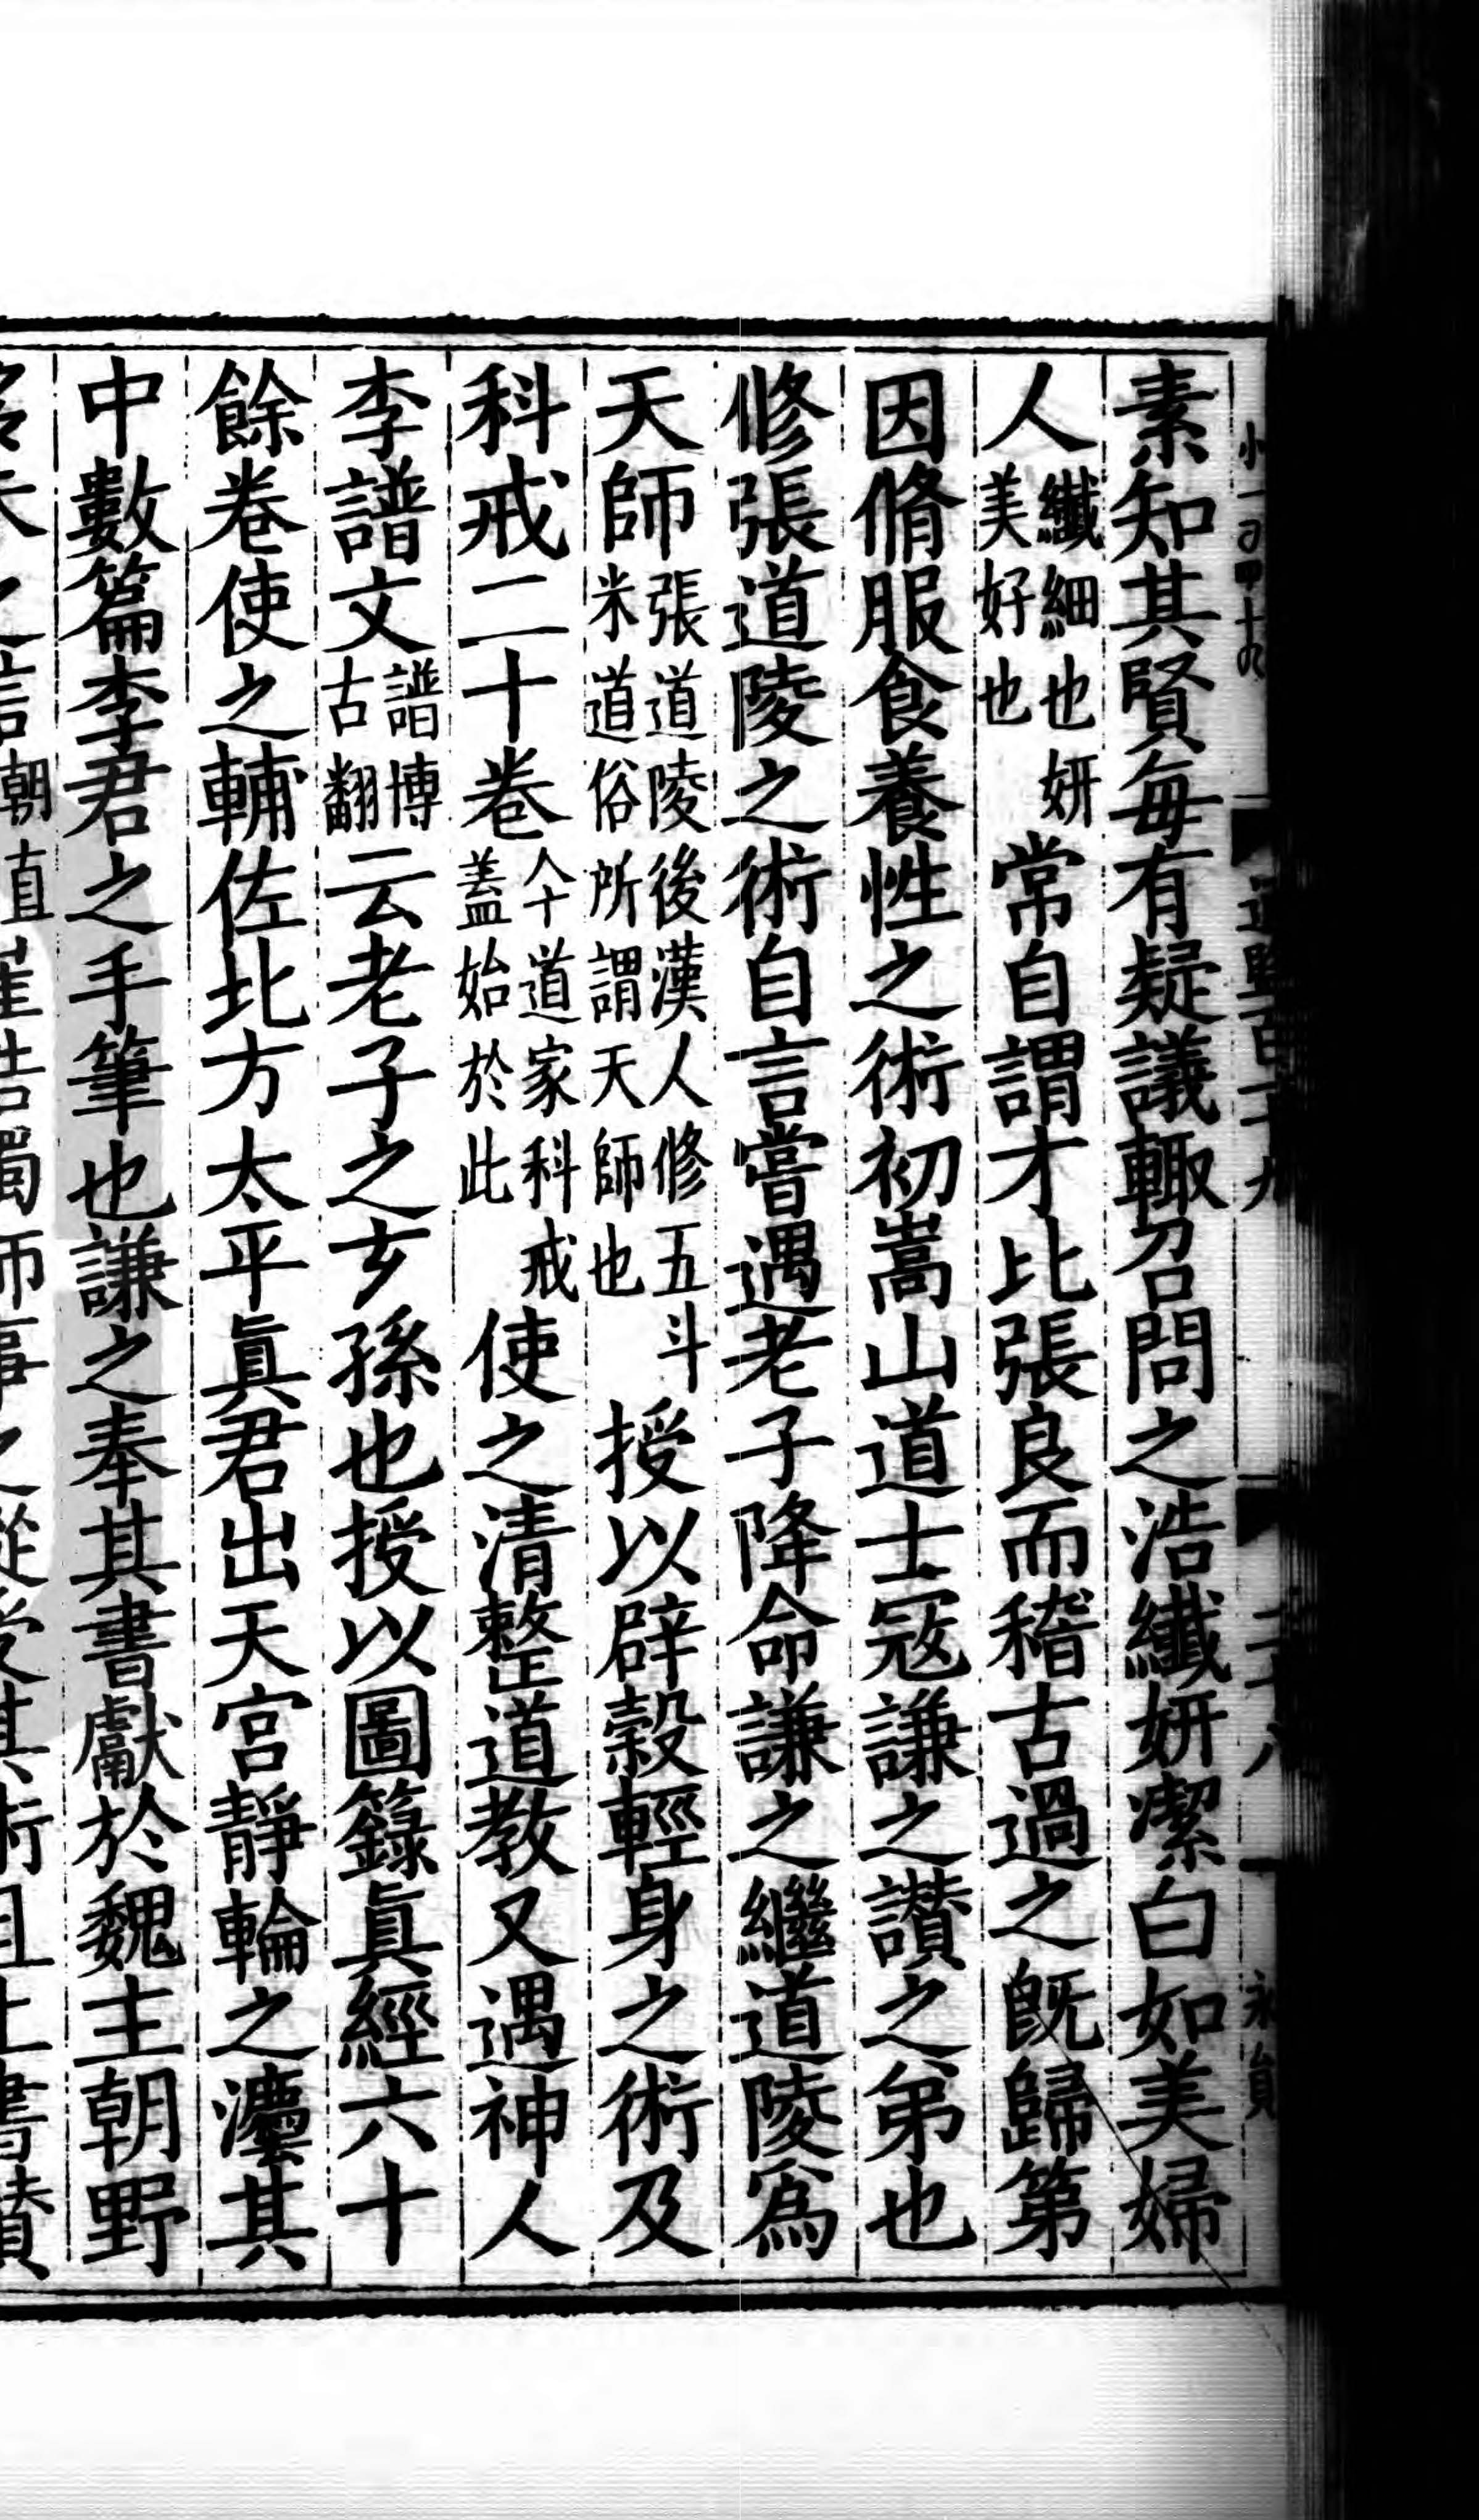 素知其賢每有疑議輙召問之浩纖妍潔白如美婦
人纖細也妍美好也常自謂才比張良而稽古過之旣歸第
因脩服食養性之術初嵩山道士宼謙之讃之弟也
修張道陵之術自言嘗遇老子降命謙之繼道陵爲
天師張道陵後漢人修五斗米道俗所謂天師也授以辟糓輕身之術及
科戒二十卷今道家科戒蓋始於此使之清整道教又遇神人
李譜文譜博古翻云老子之玄孫也授以圖籙眞經六十
餘卷使之輔佐北方太平眞君出天宮靜輪之灋其
中數篇李君之手筆也謙之奉其書獻於魏主朝野